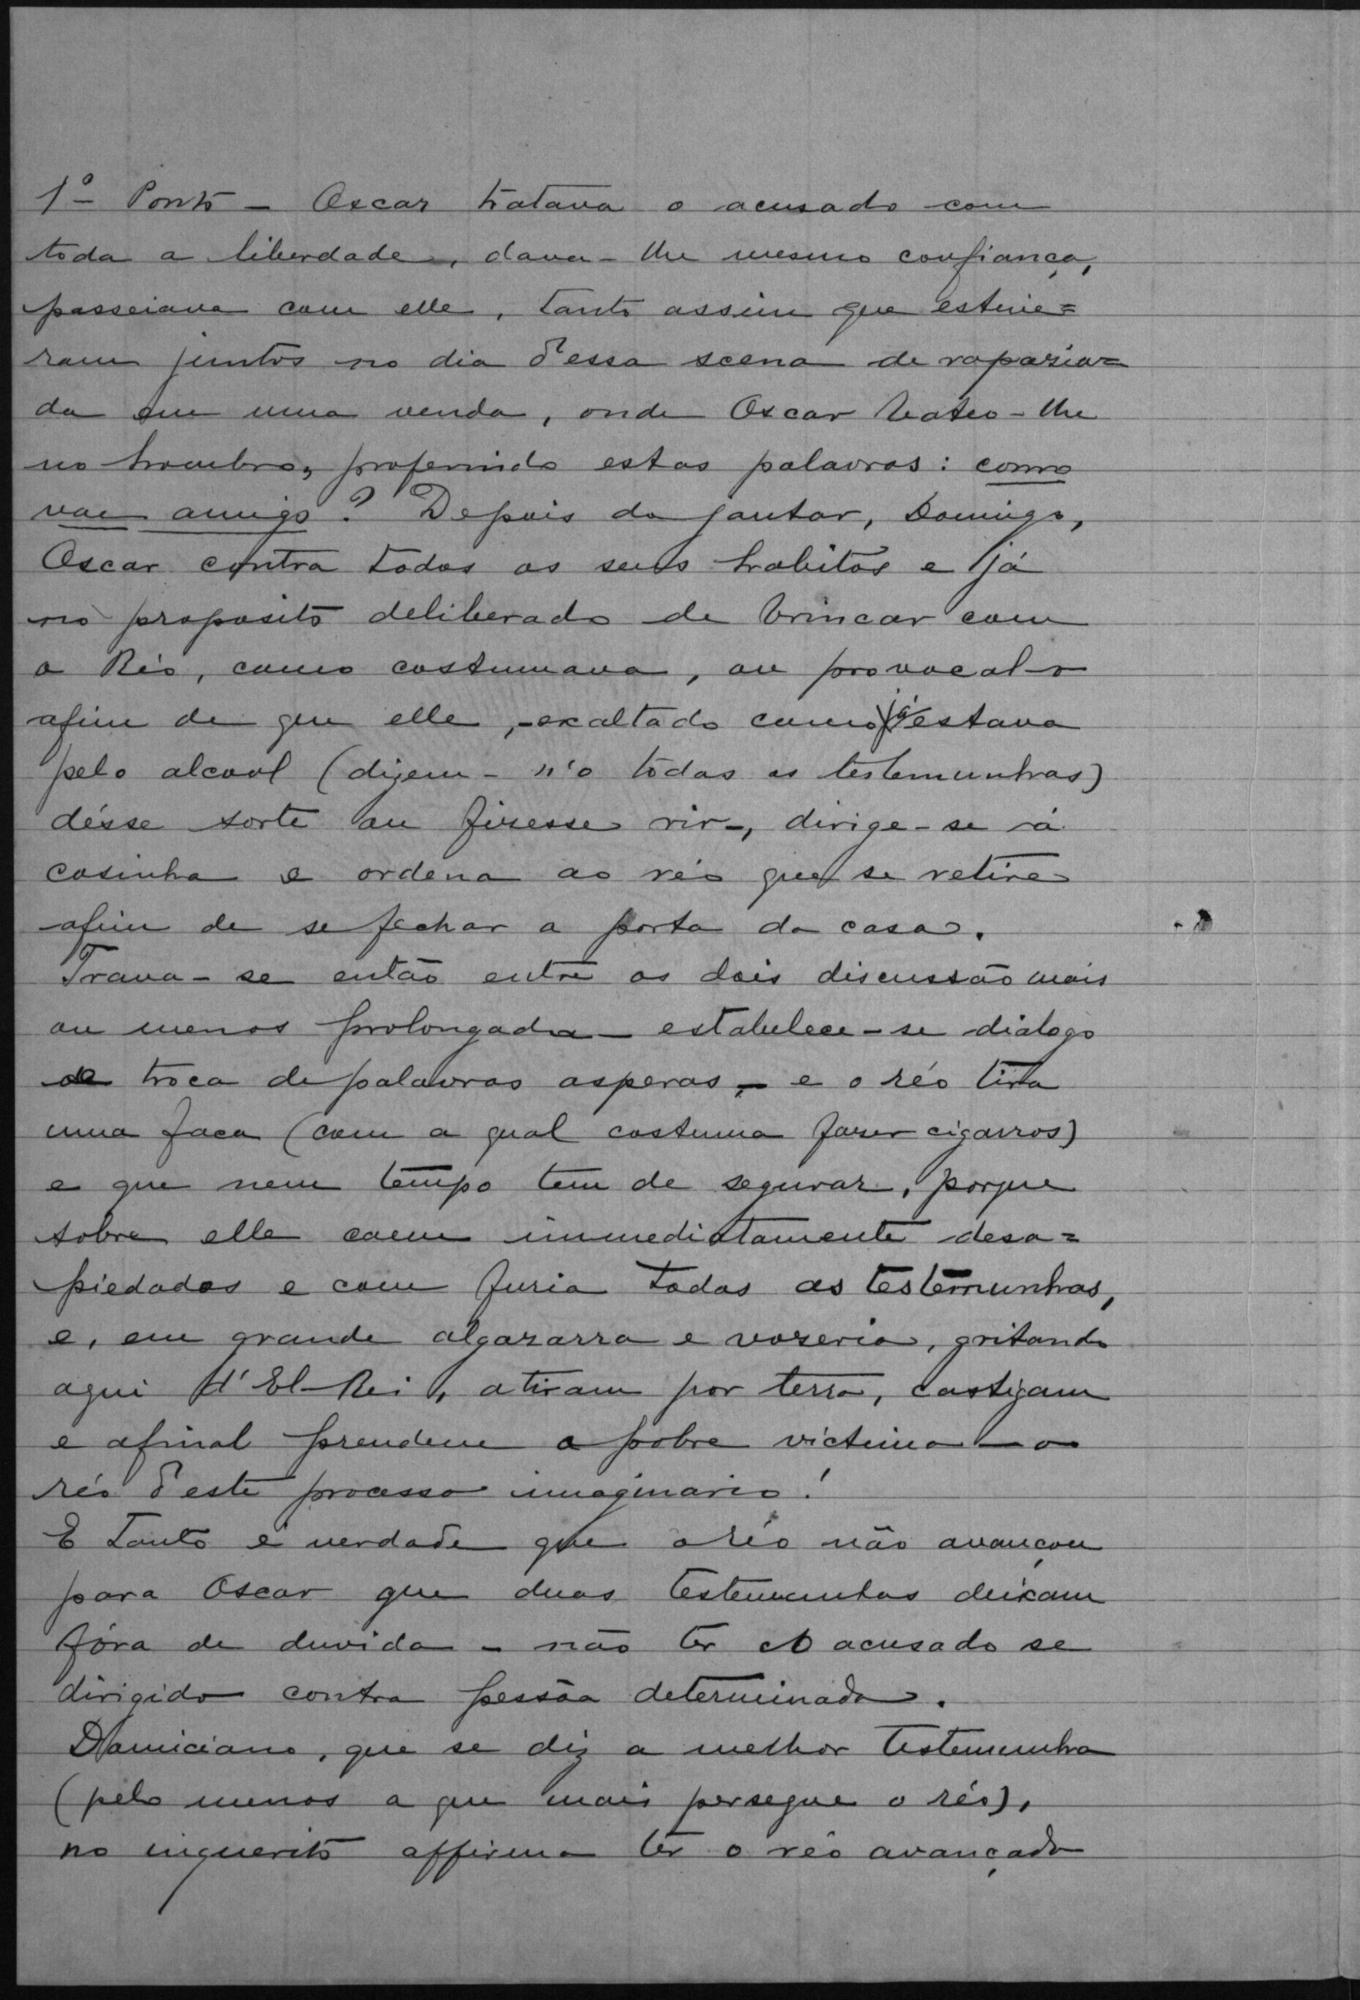 1º Ponto – Oscar tratava o acusado com
toda a liberdade, dava-lhe mesmo confiança,
passeiava com elle, tanto assim que estive=
ram juntos no dia d'essa scena de rapazia=
da em uma venda, onde Oscar bateo-lhe
no hombro, proferindo estas palavras: como
vae amigo? Depois do jantar, Domingo,
Oscar contra todos os seus habitos e já
no proposito deliberado de brincar com
o Réo, como costumava, ou provocal-o
afim de que elle, exaltado como já estava
pelo alcool (dizem-n'o todas as testemunhas)
désse sorte ou fizesse rir, dirige-se á
cosinha e ordena ao réo que se retire
afim de se fechar a porta da casa.
Trava-se então entre os dois discussão mais
ou menos prolongada – estabelece-se dialogo
de troca de palavras asperas, – e o réo tira
uma faca (com a qual costuma fazer cigarros)
e que nem tempo tem de segurar, porque
sobre elle caem immediatamente desa=
piedadas e com furia todas as testemunhas,
e, em grande algazarra e vozeria, gritando
aqui d'El-Rei, atiram por terra, castigam
e afinal prendem a pobre victima – o
réo d'este processo imaginario!
E tanto é verdade que o réo não avançou
para Oscar que duas testemunhas deixam
fóra de duvida – não ter o acusado se
dirigido contra pessôa determinada.
Damiciano, que se diz a melhor testemunha
(pelo menos a que mais persegue o réo),
no inquerito affirma ter o réo avançado